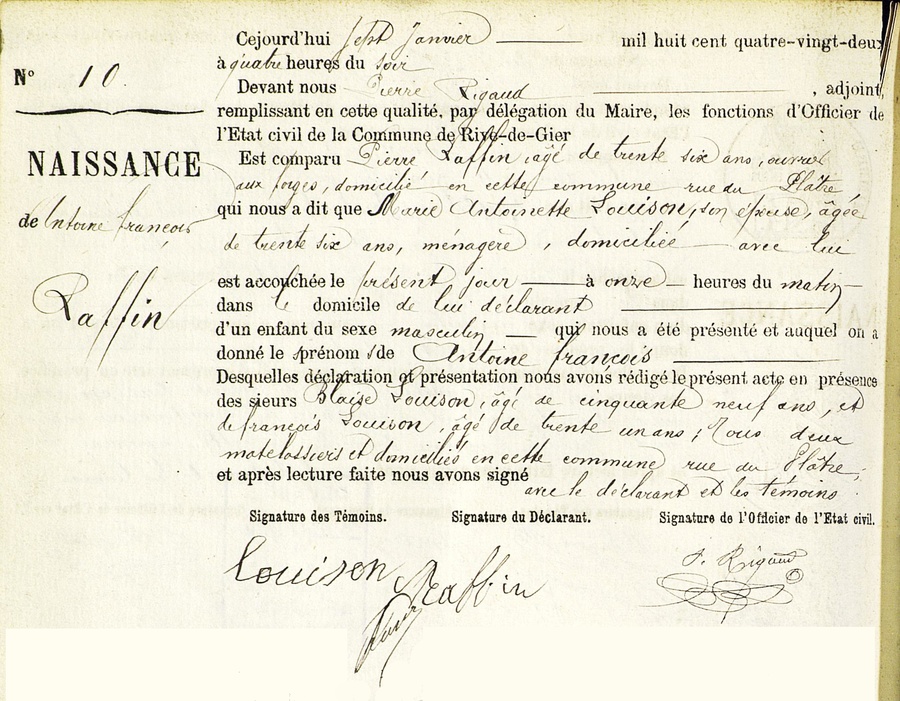 Cejourd'hui sept Janvier mil huit cent quatre-vingt-deux
à quatre heures du soir
N° 10
Devant nous Pierre Rigaud, adjoint,
remplissant en cette qualité, par délégation du Maire, les fonctions d'Officier de
l'Etat civil de la Commune de Rive-de-Gier
NAISSANCE
Est comparu Pierre Raffin, âgé de trente six ans, ouvrier
aux forges, domicilié en cette commune rue du Plâtre,
de Antoine françois
qui nous a dit que Marie Antoinette Louison, son épouse, âgée
de trente six ans, ménagère, domiciliée avec lui
Raffin
est accouchée le présent jour à onze heures du matin
dans le domicile de lui déclarant
d'un enfant du sexe masculin qui nous a été présenté et auquel on a
donné le prénoms de Antoine françois
Desquelles déclaration et présentation nous avons rédigé le présent acte en présence
des sieurs Blaise Louison, âgé de cinquante neuf ans, et
de françois Louison, âgé de trente un ans; Tous deux
matelassiers et domiciliés en cette commune rue du Plâtre;
et après lecture faite nous avons signé
avec le déclarant et les témoins
Signature des Témoins. Signature du Déclarant. Signature de l'Officier de l'Etat civil.
Louison Raffin P. Rigaud